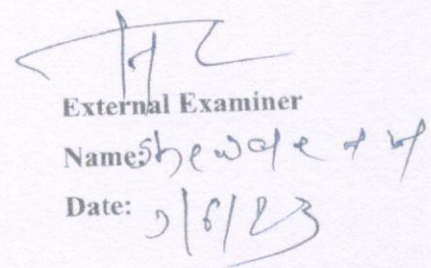 External Examiner
Name: Shewale
Date: /6/23